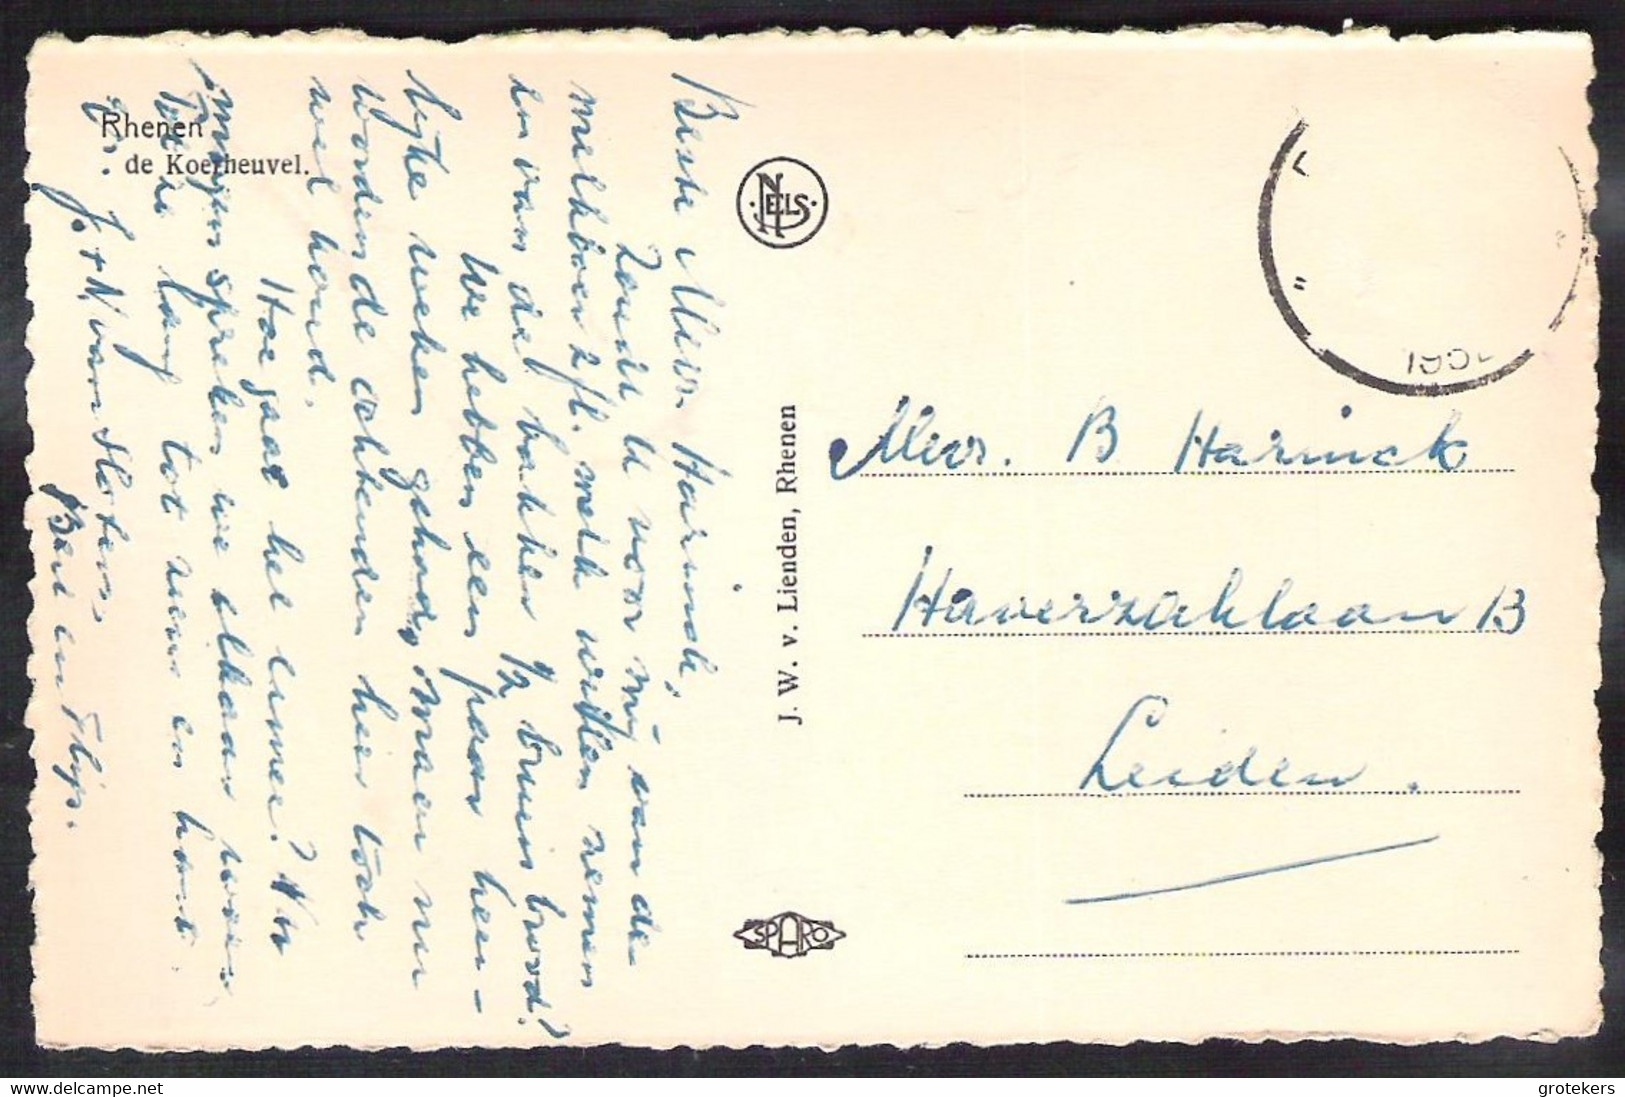 Rhenen
de Koerheuvel.
Beste Mevr. Harinck,
Zoudt u voor mij van de
melkboer 2 fl. melk willen nemen
en van de bakker 1/2 bruin brood?
We hebben een paar heer-
lijke weken gehad, maar nu
worden de ochtenden hier toch
wel koud.
Hoe gaat het ermee? Nu
morgen spreken we elkaar weer,
Tot
lang tot ziens en hart.
gr. J. + N van Sloten,
Bert en Flip.
NELS
J. W. v. Lienden, Rhenen
SPARO
195
Mevr. B Harinck
Haverzaklaan 13
Leiden.
grotekers
www.delcampe.net